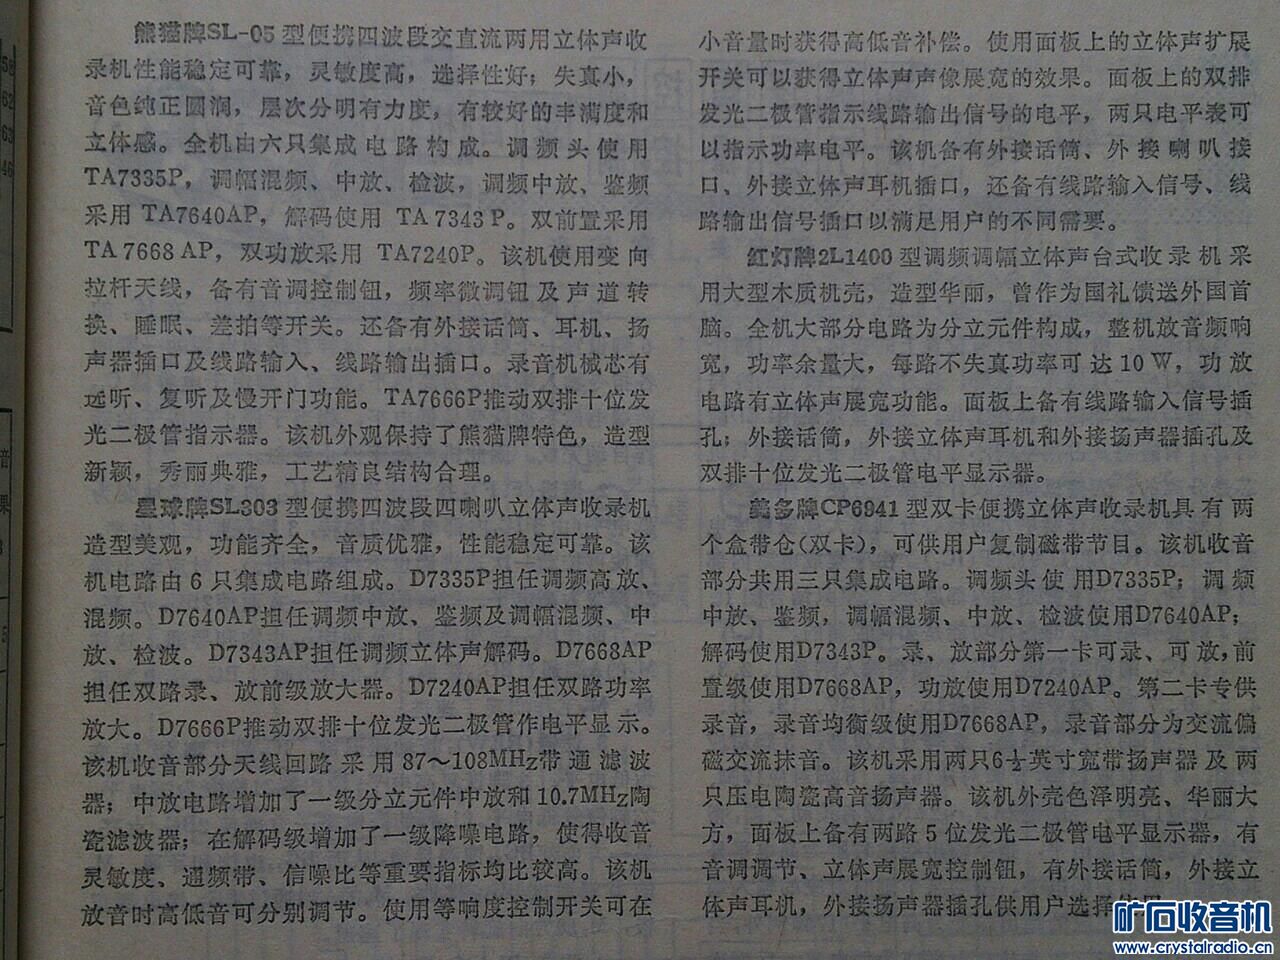 熊猫牌SL-05型便携四波段交直流两用立体声收
录机性能稳定可靠，灵敏度高，选择性好；失真小，
音色纯正圆润，层次分明有力度，有较好的丰满度和
立体感。全机由六只集成电路构成。调频头使用
TA7335P，调幅混频、中放、检波，调频中放、鉴频
采用TA7640AP，解码使用TA7343P。双前置采用
TA7668AP，双功放采用TA7240P。该机使用变向
拉杆天线，备有音调控制钮，频率微调钮及声道转
换、睡眠、差拍等开关。还备有外接话筒、耳机、扬
声器插口及线路输入、线路输出插口。录音机械芯有
选听、复听及慢开门功能。TA7666P推动双排十位发
光二极管指示器。该机外观保持了熊猫牌特色，造型
新颖，秀丽典雅，工艺精良结构合理。
星球牌SL303型便携四波段四喇叭立体声收录机
造型美观，功能齐全，音质优雅，性能稳定可靠。该
机电路由6只集成电路组成。D7335P担任调频高放、
混频。D7640AP担任调频中放、鉴频及调幅混频、中
放、检波。D7343AP担任调频立体声解码。D7668AP
担任双路录、放前级放大器。D7240AP担任双路功率
放大。D7666P推动双排十位发光二极管作电平显示。
该机收音部分天线回路采用87～108MHz带通滤波
器；中放电路增加了一级分立元件中放和10.7MHz陶
瓷滤波器；在解码级增加了一级降噪电路，使得收音
灵敏度、通频带、信噪比等重要指标均比较高。该机
放音时高低音可分别调节。使用等响度控制开关可在
小音量时获得高低音补偿。使用面板上的立体声扩展
开关可以获得立体声声像展宽的效果。面板上的双排
发光二极管指示线路输出信号的电平，两只电平表可
以指示功率电平。该机备有外接话筒、外接喇叭接
口、外接立体声耳机插口，还备有线路输入信号、线
路输出信号插口以满足用户的不同需要。
红灯牌2L1400型调频调幅立体声台式收录机采
用大型木质机壳，造型华丽，曾作为国礼馈送外国首
脑。全机大部分电路为分立元件构成，整机放音频响
宽，功率余量大，每路不失真功率可达10W，功放
电路有立体声展宽功能。面板上备有线路输入信号插
孔；外接话筒，外接立体声耳机和外接扬声器插孔及
双排十位发光二极管电平显示器。
美多牌CP6941型双卡便携立体声收录机具有两
个盒带仓(双卡)，可供用户复制磁带节目。该机收音
部分共用三只集成电路。调频头使用D7335P；调频
中放、鉴频，调幅混频、中放、检波使用D7640AP；
解码使用D7343P。录、放部分第一卡可录、可放，前
置级使用D7668AP，功放使用D7240AP。第二卡专供
录音，录音均衡级使用D7668AP，录音部分为交流偏
磁交流抹音。该机采用两只6½英寸宽带扬声器及两
只压电陶瓷高音扬声器。该机外壳色泽明亮、华丽大
方，面板上备有两路5位发光二极管电平显示器，有
音调调节、立体声展宽控制钮，有外接话筒，外接立
体声耳机，外接扬声器插孔供用户选择
矿石收音机
www.crystalradio.cn